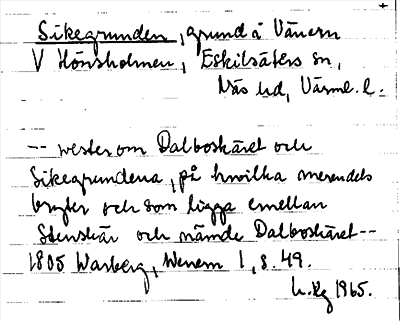 Sikegrunden, grund i Vänern
V Hönsholmen, Eskilsäters sn,
Näs hd, Värml. l.
-- wester om Dalboskäret och
Sikegrundena, på hwilka merendels
bryter och som ligga emellan
Stenskär och nämde Dalboskäret --
1805 Warberg, Wenern 1, s. 49.
1965.